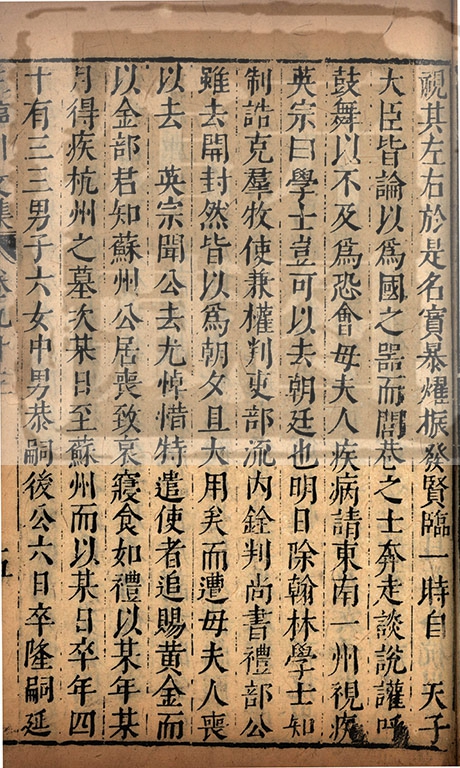 視其左右於是名實暴耀振發賢臨一時自　天子
大臣皆論以為國之器而閭巷之士奔走談說讙呼
鼓舞以不及為恐會毋夫人疾病請東南一州視疾
英宗曰學士豈可以去朝廷也明日除翰林學士知
制誥克羣牧使兼權判吏部流內銓判尚書禮部公
雖去開封然皆以為朝夕且大用矣而遭毋夫人喪
以去　英宗聞公去尤悼惜特遣使者追賜黃金而
以金部君知蘇州公居喪致哀寢食如禮以某年某
月得疾杭州之墓次某日至蘇州而以某日卒年四
十有三三男子六女中男恭嗣後公六日卒隆嗣延
王臨川文集　卷九十三
五